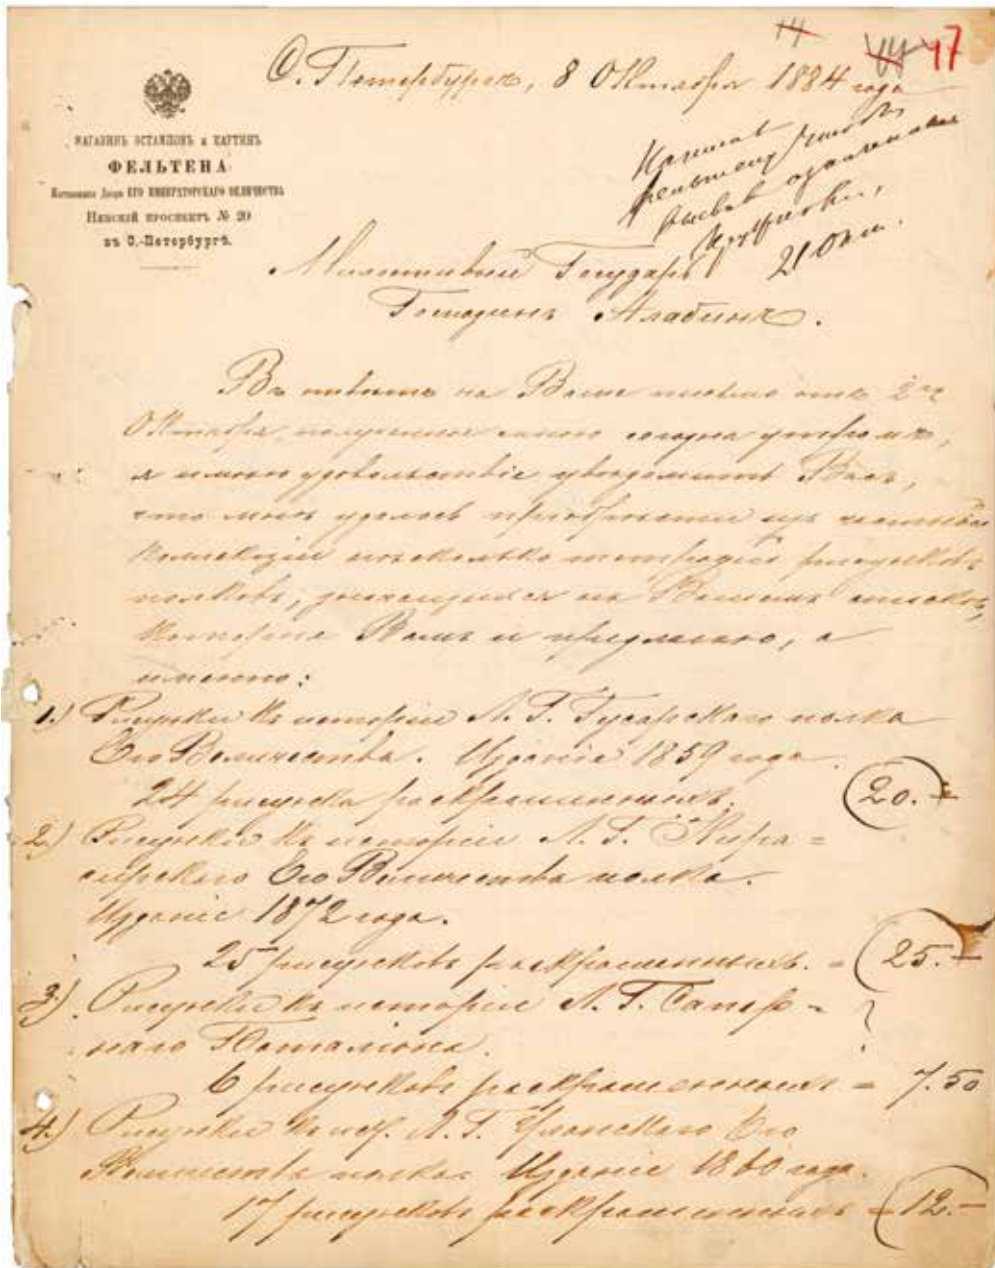 14 44 17
С. Петербургъ, 8 Октября 1884 года
МАГАЗИНЪ ЭСТАМПОВЪ и КАРТИНЪ
ФЕЛЬТЕНА
Коммиссіонера Двора ЕГО ИМПЕРАТОРСКАГО ВЕЛИЧЕСТВА
Невскій проспектъ № 20
въ С.-Петербургѣ.
21 Окт.
Милостивый Государь
Господинъ Алабинъ.
Въ отвѣтъ на Ваше письмо отъ 2го
Октября, полученное мною сегодня утромъ,
я имѣю удовольствіе увѣдомить Васъ,
что мнѣ удалось пріобрѣсти изъ частной
коллекціи нѣсколько тетрадей рисунковъ
полковъ, значущихся въ Вашемъ спискѣ,
которые Вамъ и предлагаю, а
именно:
1.) Рисунки къ исторіи Л. Г. Гусарскаго полка
Его Величества. Изданіе 1859 года.
24 рисунка раскрашенныхъ. 20.-
2.) Рисунки къ исторіи Л. Г. Кира=
сирскаго Его Величества полка.
Изданіе 1872 года.
25 рисунковъ раскрашенныхъ. = 25.-
3.) Рисунки къ исторіи Л. Г. Сапер=
наго Баталіона.
6 рисунковъ раскрашенныхъ = 7.50
4.) Рисунки къ ист. Л. Г. Уланскаго Его
Величества полка. Изданіе 1860 года.
17 рисунковъ раскрашенныхъ = 12.-